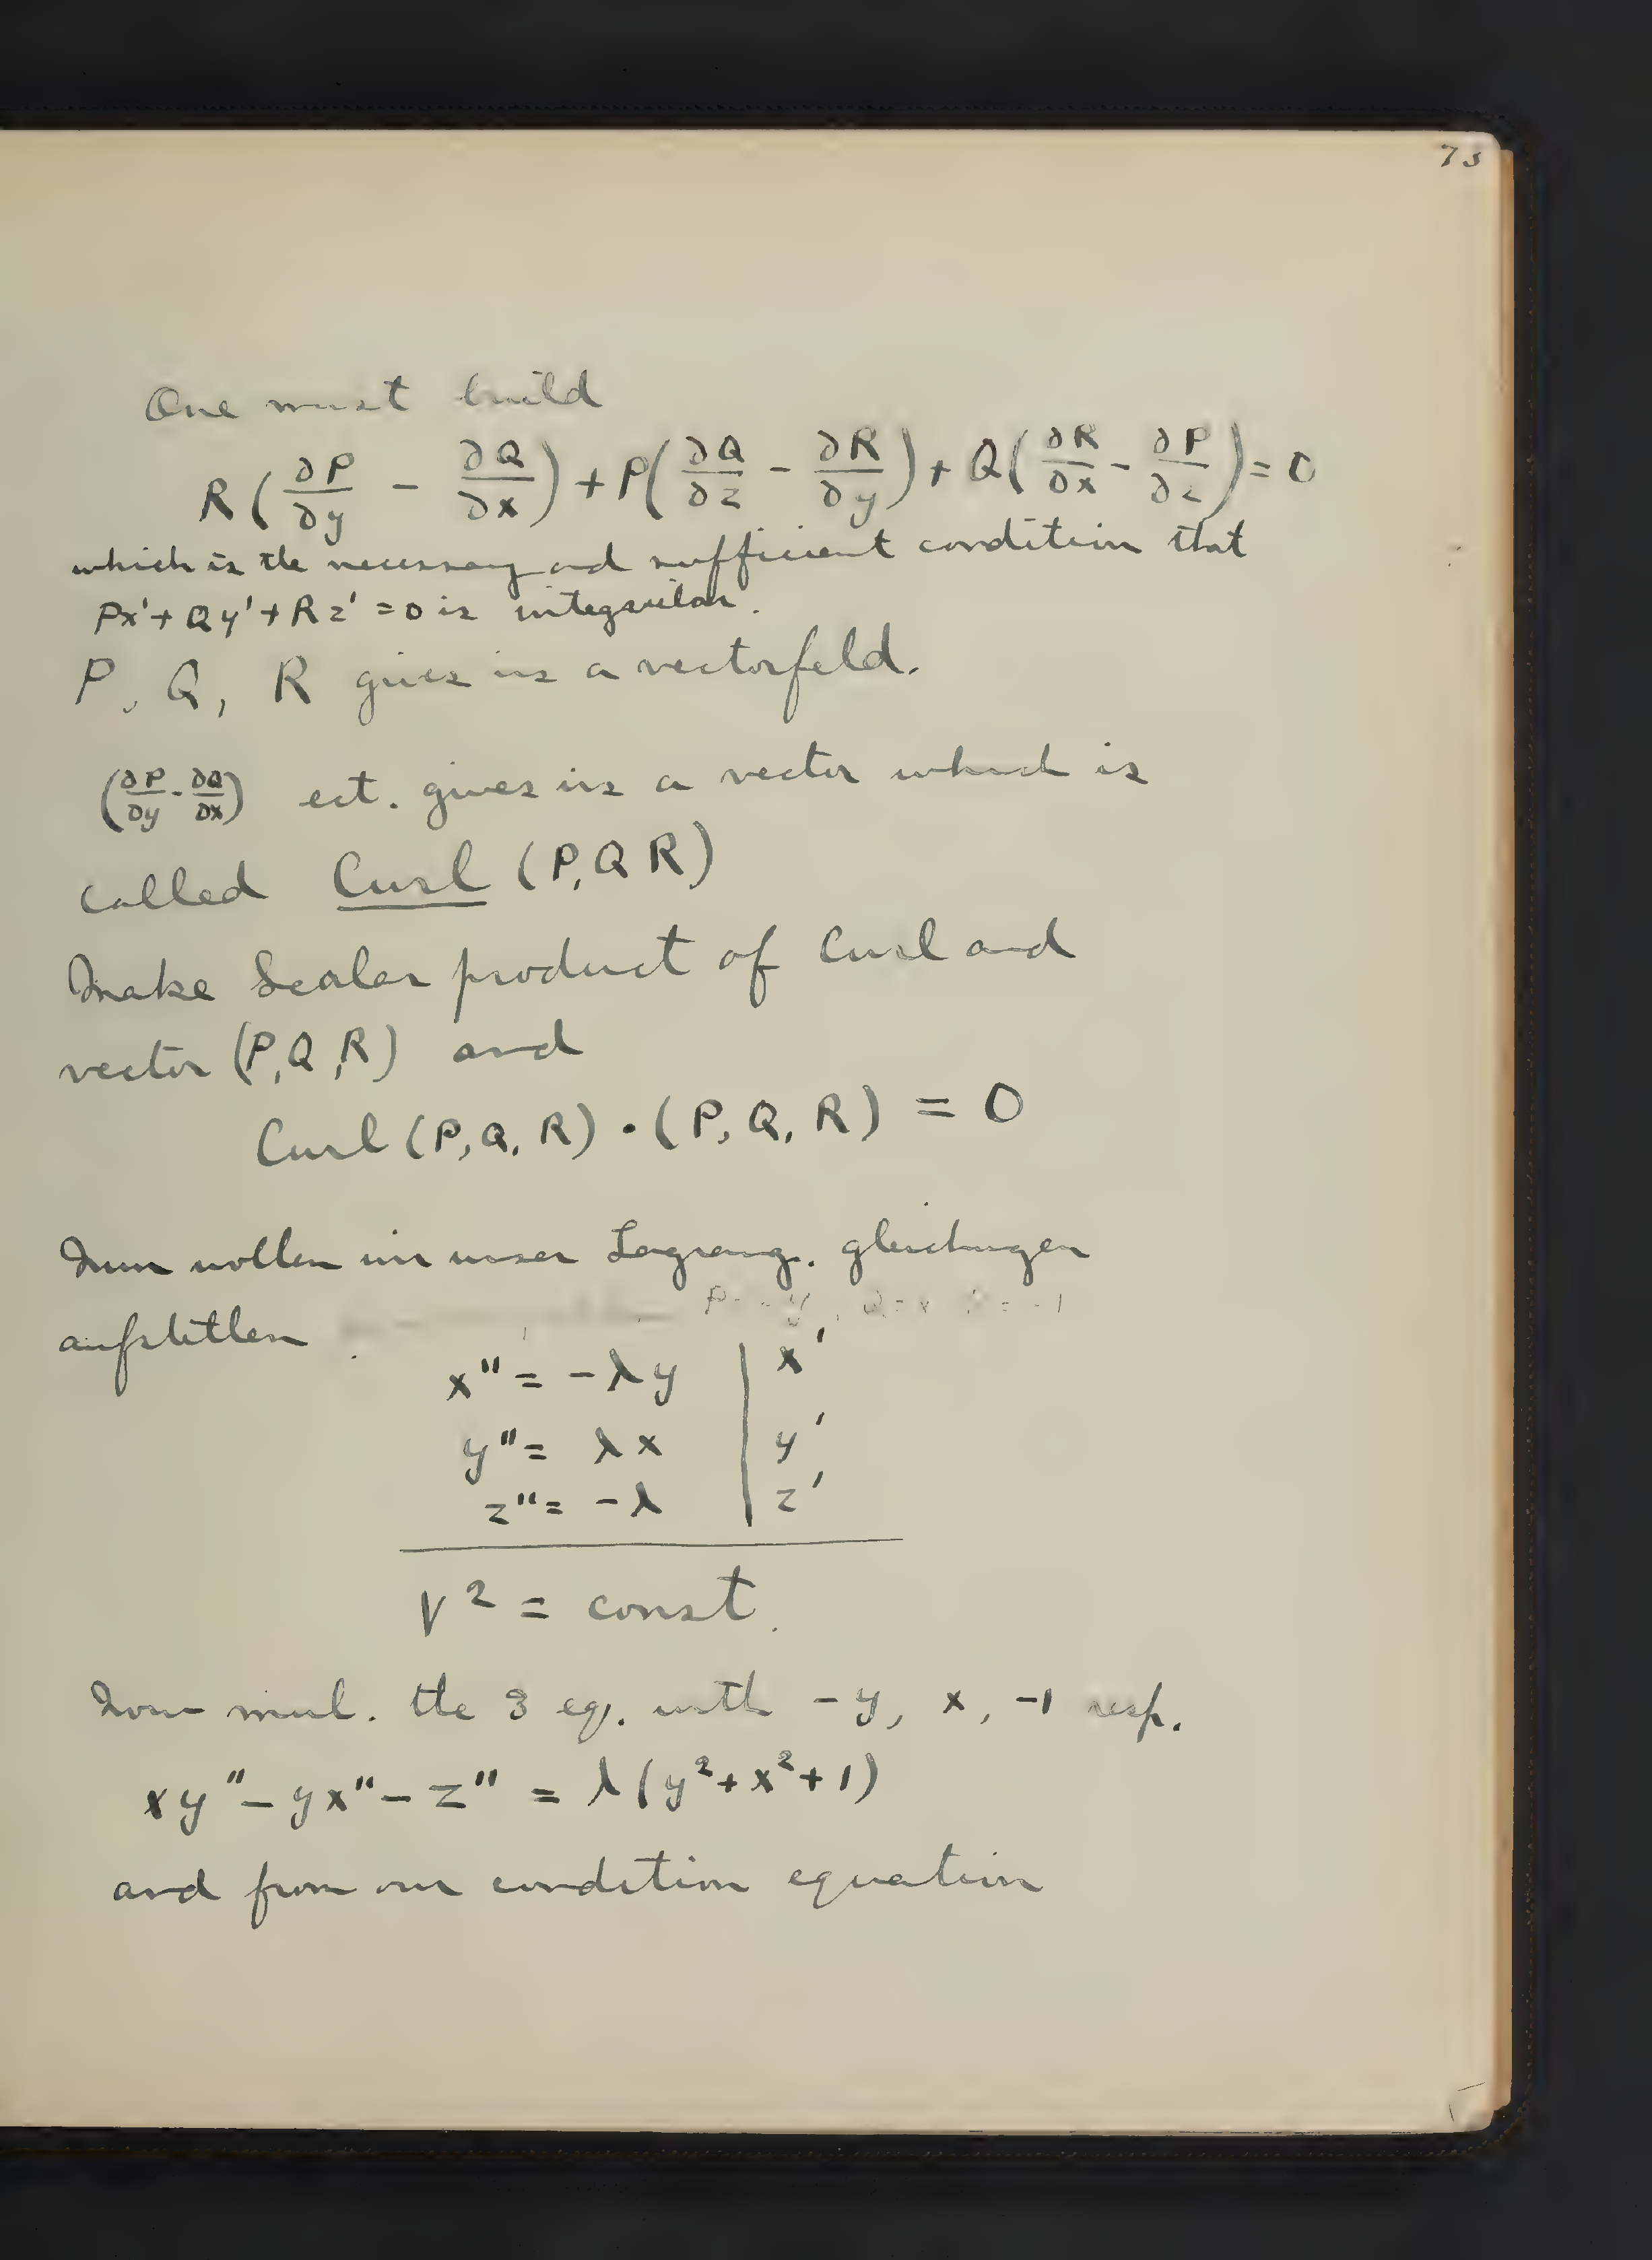 73
One must build
R(∂P/∂y - ∂Q/∂x) + P(∂Q/∂z - ∂R/∂y) + Q(∂R/∂x - ∂P/∂z) = 0
which is the necessary and sufficient condition that
Px' + Qy' + Rz' = 0 is
P, Q, R gives us a vectorfeld.
(∂P/∂y - ∂Q/∂x) ect. gives us a vector which is
called Curl (P,Q R)
Make Scalar product of Curl and
vector (P,Q,R) and
Curl (P,Q,R) · (P,Q,R) = 0
Nun wollen wir unser Lagrang. gleichungen
aufstellen.
x'' = -λy | x'
y'' = λx | y'
z'' = -λ | z'
V² = const.
Now mul. the 3 eq. with -y, x, -1 resp.
xy'' - yx'' - z'' = λ(y² + x² + 1)
and from our condition equation